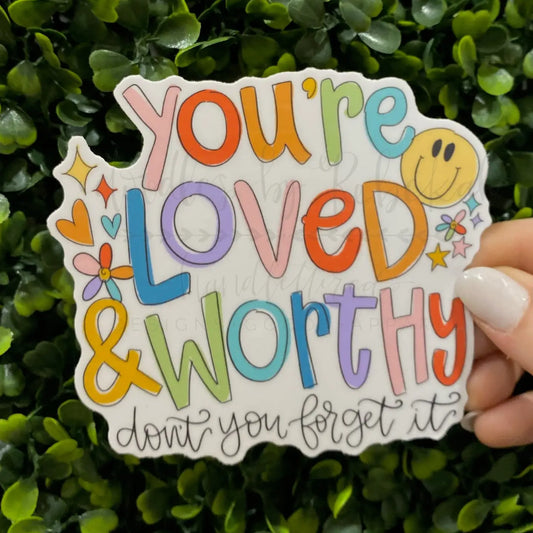 you're
Loved
& Worthy
don't you forget it